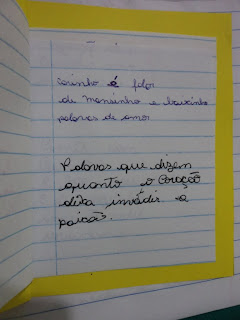 Carinho é falar
de mansinho e baixinho
palavras de amor
Palavras que dizem
quanto o Coração
deixa invadir a
paixão.